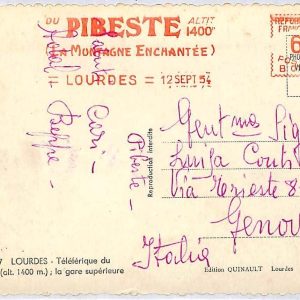 DU PIBESTE ALTIT
1400
(LA MONTAGNE ENCHANTÉE)
LOURDES = 12 SEPT 54
Cari
Beppe
Reproduction interdite
Gent ma
Luisa
Via Trieste 8
Genova
Italia
7 LOURDES - Téléférique du
(alt. 1400 m.) ; la gare supérieure
Edition QUINAULT Lourdes